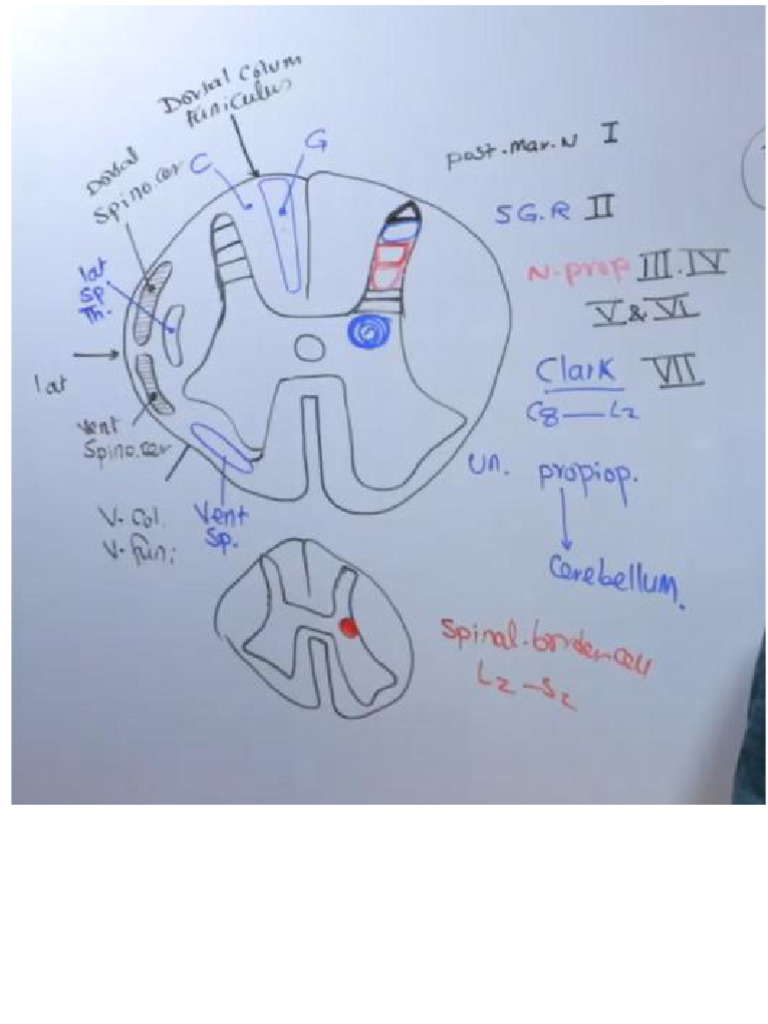 Dorsal Colum
funiculus
G
C
Dorsal
Spino.cer
lat
Sp
Th.
lat
Vent
Spino.cer
V. Col.
V. fun;
Vent
Sp.
post.mar.N I
SG.R II
N-prop III.IV
V & VI
Clark VII
C8—L2
Un. propiop.
Cerebellum.
Spinal.border cell
L2-S2